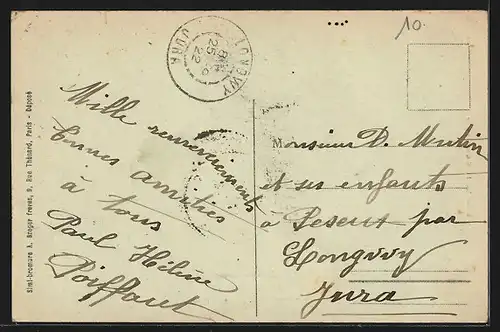 10.
LONGWY
8H
25 - 6
22
JURA
Mille remerciements
bonnes amitiés
à tous
Paul Hélène
Poiffaut
Monsieur D. Mutin
et ses enfants
à Peseux par
Longwy
Jura
Simi-bromure A. Breger frères, 9, Rue Thénard, Paris - Déposé